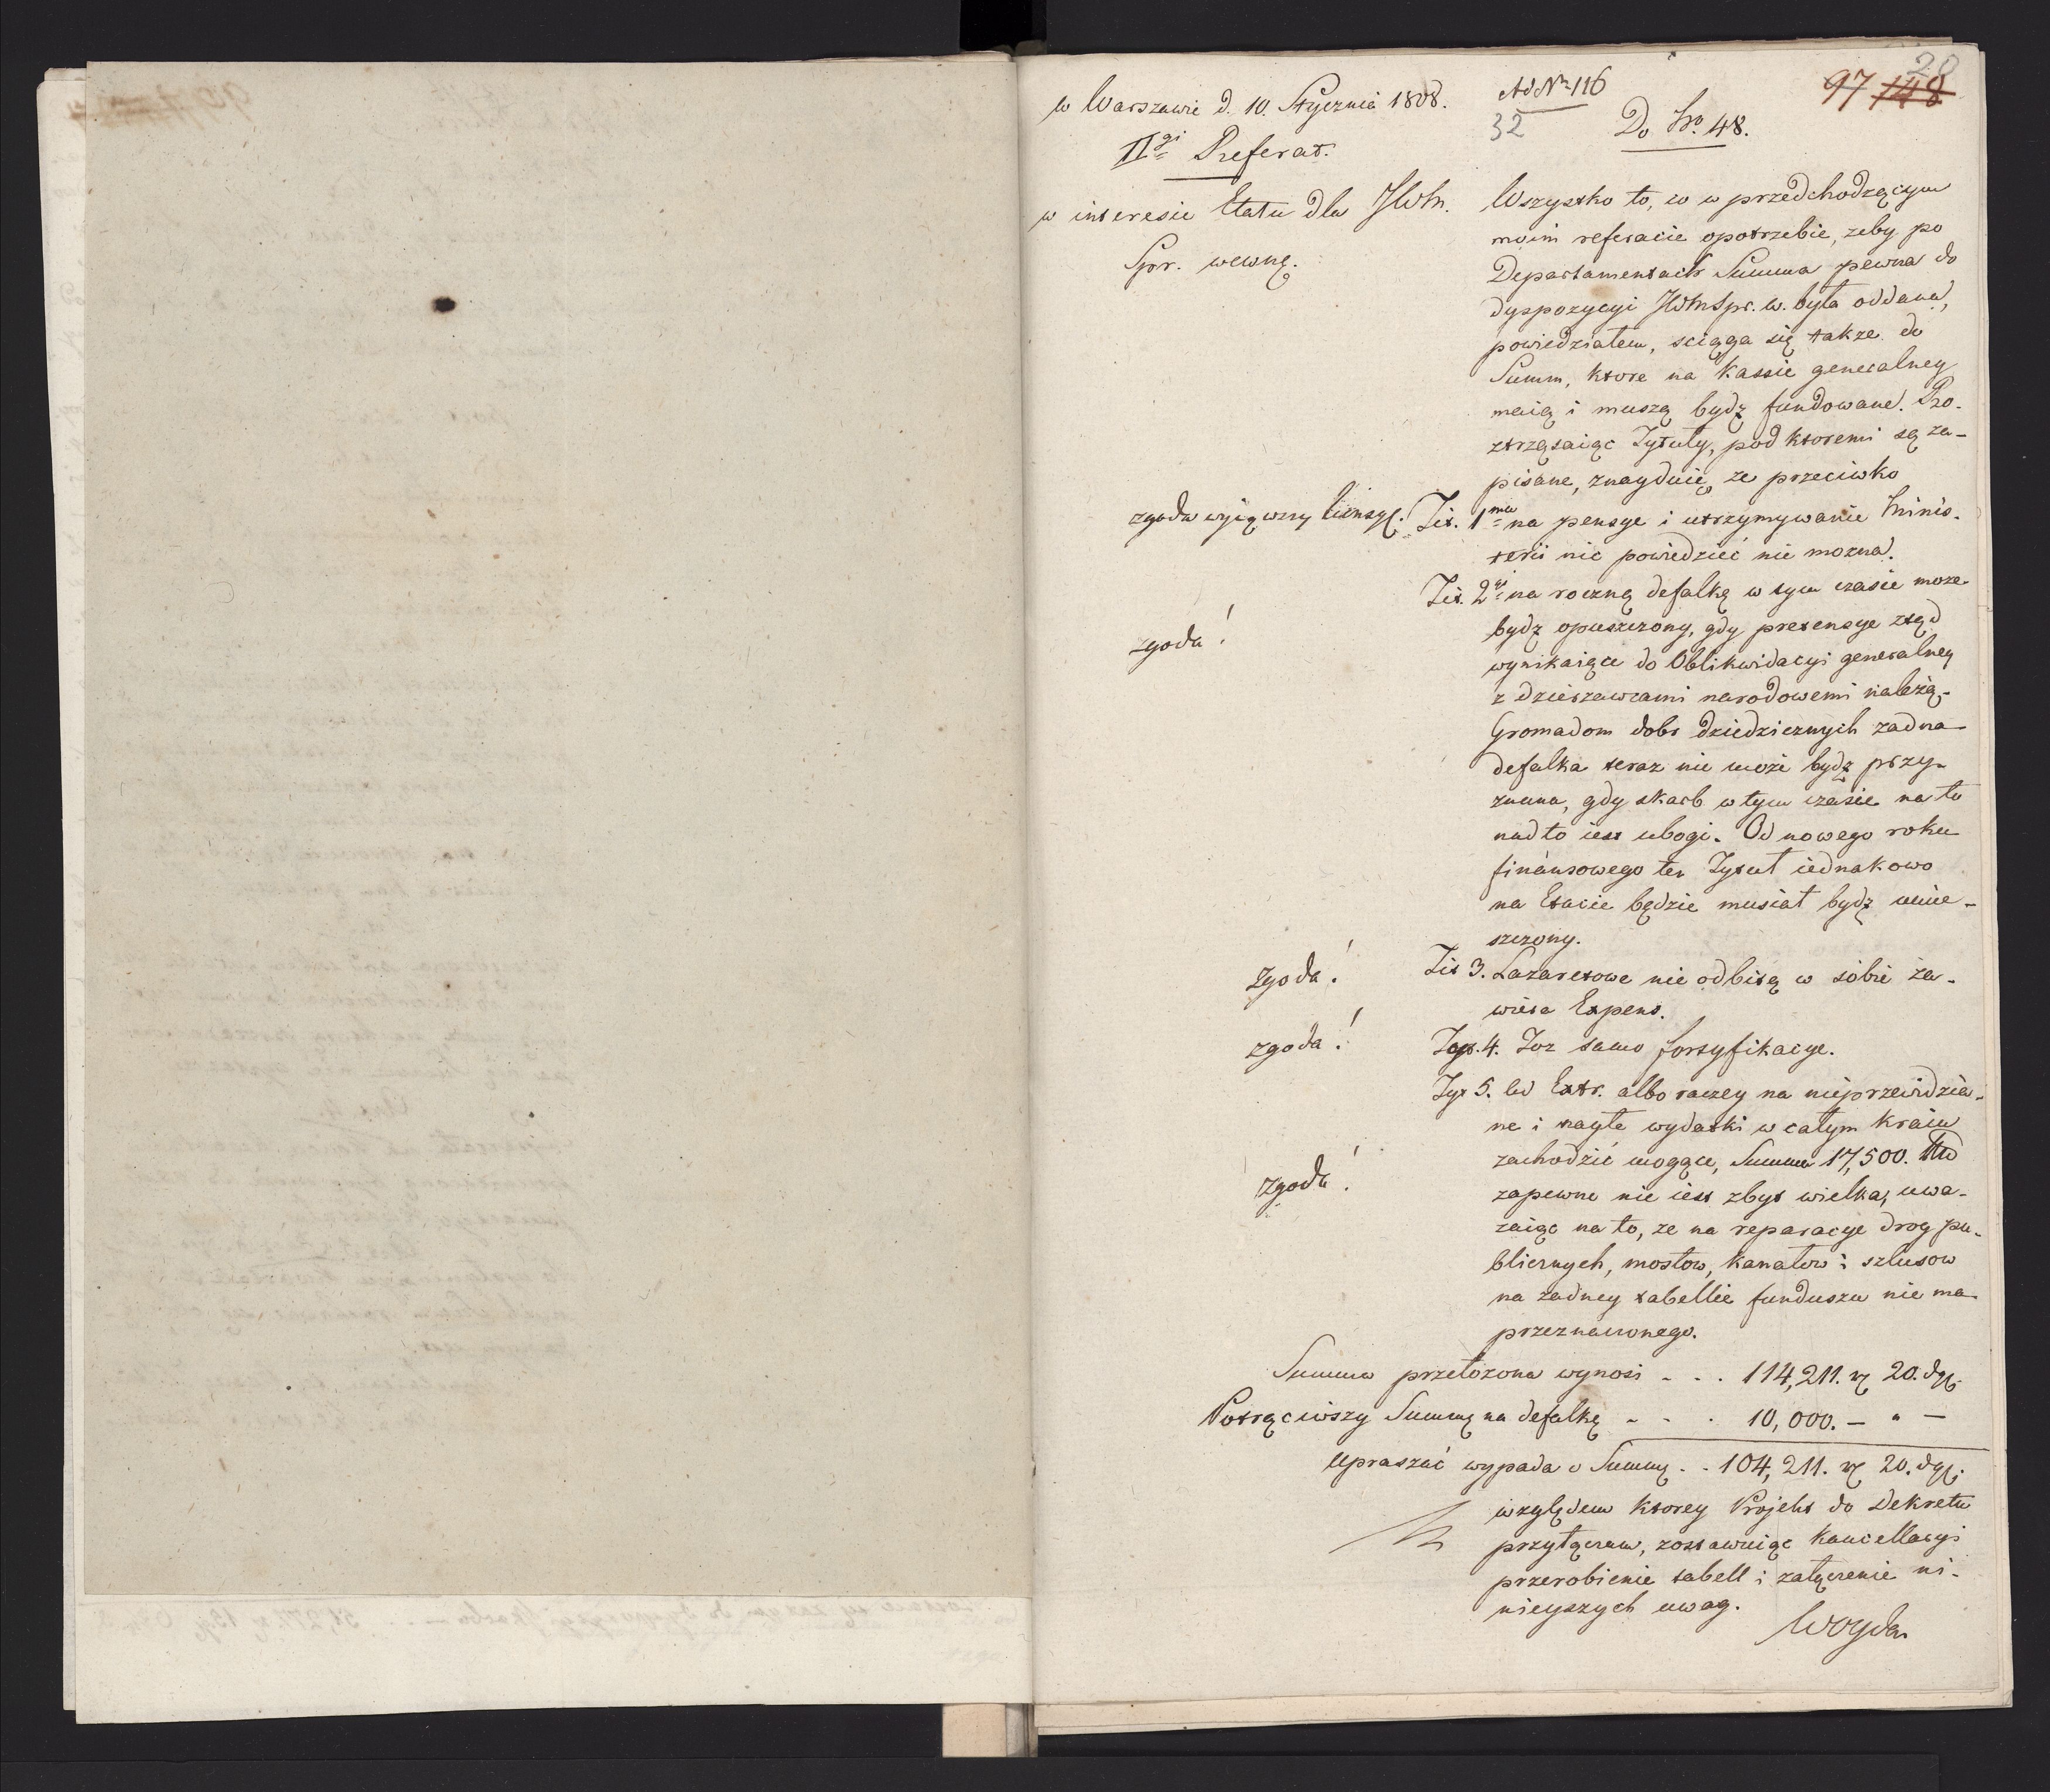 28
97 148
w Warszawie d. 10. Stycznia 1808.
Ad Nr 116
32
Do Nro. 48.
IIgi Referat.
w interesie Etatu dla JWM.
Spr. wewnę.
Wszystko to, co w przedchodzącym
moim referacie opotrzebie, zeby po
Departamentach Summa pewna do
dyspozycyi JWMSpr. w. była oddana,
powiedziałem, sciąga się także do
Summ, ktore na Kassie generalney
maią i muszą bydź fundowane. Ro-
ztrząsaiąc Tytuły, pod ktoremi są za-
pisane, znayduię, ze przeciwko
zgoda wyiąwszy
Tit. 1mu na pensye i utrzymywanie Minis-
terii nic powiedzieć nie mozna.
zgoda!
Tit. 2gi na roczną defalkę w tym czasie moze
bydź opuszczony, gdy pretensye ztąd
wynikaiące do Oblikwidacyi generalney
z dzierzawcami narodowemi należą.
Gromadom dobr dziedzicznych zadna
defalka teraz nie może bydź przy-
znana, gdy skarb w tym czasie na to
nadto iest ubogi. Od nowego roku
finansowego ten Tytuł iednakowo
na Etacie będzie musiał bydź umie-
szczony.
zgoda!
Tit 3. Lazaretowe nie odbitą w sobie za-
wiera Expens.
zgoda!
Tyt. 4. Toz samo fortyfikacye.
Tyt 5. ad Extr. albo raczey na nieprzewidzia-
ne i nagłe wydatki w całym Kraiu
zachodzić mogące, Summa 17,500.
zgoda!
zapewne nie iest zbyt wielka, uwa-
zaiąc na to, ze na reparacye drog pu-
blicznych, mostow, kanałow i szlusow
na zadney tabellie funduszu nie ma
przeznaczonego.
Summa przełozona wynosi - . . 114,211. 20. dgl.
Potrąciwszy Summę na defalkę - - . 10,000. — " —
Upraszać wypada o Summę . . 104,211. 20. dgl.
względem ktorey Projekt do Dekretu
przyłączam, zostawuiąc Kancellaryi
przerobienie tabell i załączenie ni-
nieyszych uwag.
Woyda